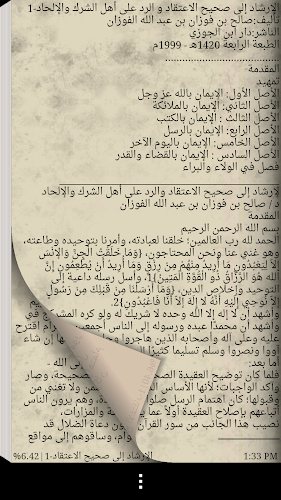 الإرشاد إلى صحيح الاعتقاد و الرد على أهل الشرك والإلحاد-1
تأليف:صالح بن فوزان بن عبد الله الفوزان
الناشر:دار ابن الجوزي
الطبعة الرابعة 1420هـ - 1999م
المقدمة
تمهيد
الأصل الأول: الإيمان بالله عز وجل
الأصل الثاني: الإيمان بالملائكة
الأصل الثالث : الإيمان بالكتب
الأصل الرابع: الإيمان بالرسل
الأصل الخامس: الإيمان باليوم الآخر
الأصل السادس : الإيمان بالقضاء والقدر
فصل في الولاء والبراء
لإرشاد إلى صحيح الاعتقاد والرد على أهل الشرك والإلحاد
د / صالح بن فوزان عبد الله الفوزان
المقدمة
بسم الله الرحمن الرحيم
الحمد لله رب العالمين؛ خلقنا لعبادته، وأمرنا بتوحيده وطاعته،
وهو غني عنا ونحن المحتاجون، {وَمَا خَلَقْتُ الْجِنَّ وَالْإِنْسَ
إِلَّا لِيَعْبُدُونِ مَا أُرِيدُ مِنْهُمْ مِنْ رِزْقٍ وَمَا أُرِيدُ أَنْ يُطْعِمُونِ إِنَّ
اللَّهَ هُوَ الرَّزَّاقُ ذُو الْقُوَّةِ الْمَتِينُ}1، وأرسل رسله داعية إلى
التوحيد وإخلاص الدين، {وَمَا أَرْسَلْنَا مِنْ قَبْلِكَ مِنْ رَسُولٍ
إِلَّا نُوحِي إِلَيْهِ أَنَّهُ لَا إِلَهَ إِلَّا أَنَا فَاعْبُدُونِ}2.
وأشهد أن لا إله إلا الله وحده لا شريك له ولو كره
وأشهد أن محمدا عبده ورسوله إلى الناس أجمعين
عليه وعلى آله وأصحابه الذين هاجروا
آووا ونصروا وسلم تسليما كثيرا
أما بعد:
فلما كان توضيح العقيدة
واكد الواجبات؛ لأنها الأساس
وقبولها؛ كان اهتمام الرسل
أتباعهم بإصلاح العقيدة أولا عما
نصيب هذا الجانب من سور القرآن
وساقوهم إلى مواقع
%6.42 الإرشاد إلى صحيح الاعتقاد-1 1:33 PM